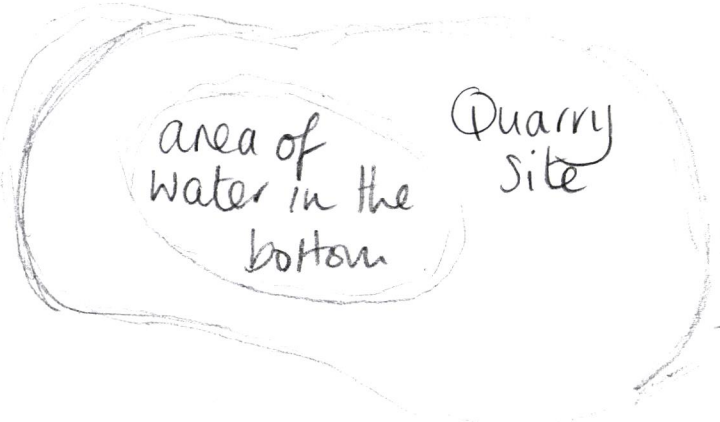 area of
water in the
bottom
Quarry
Site